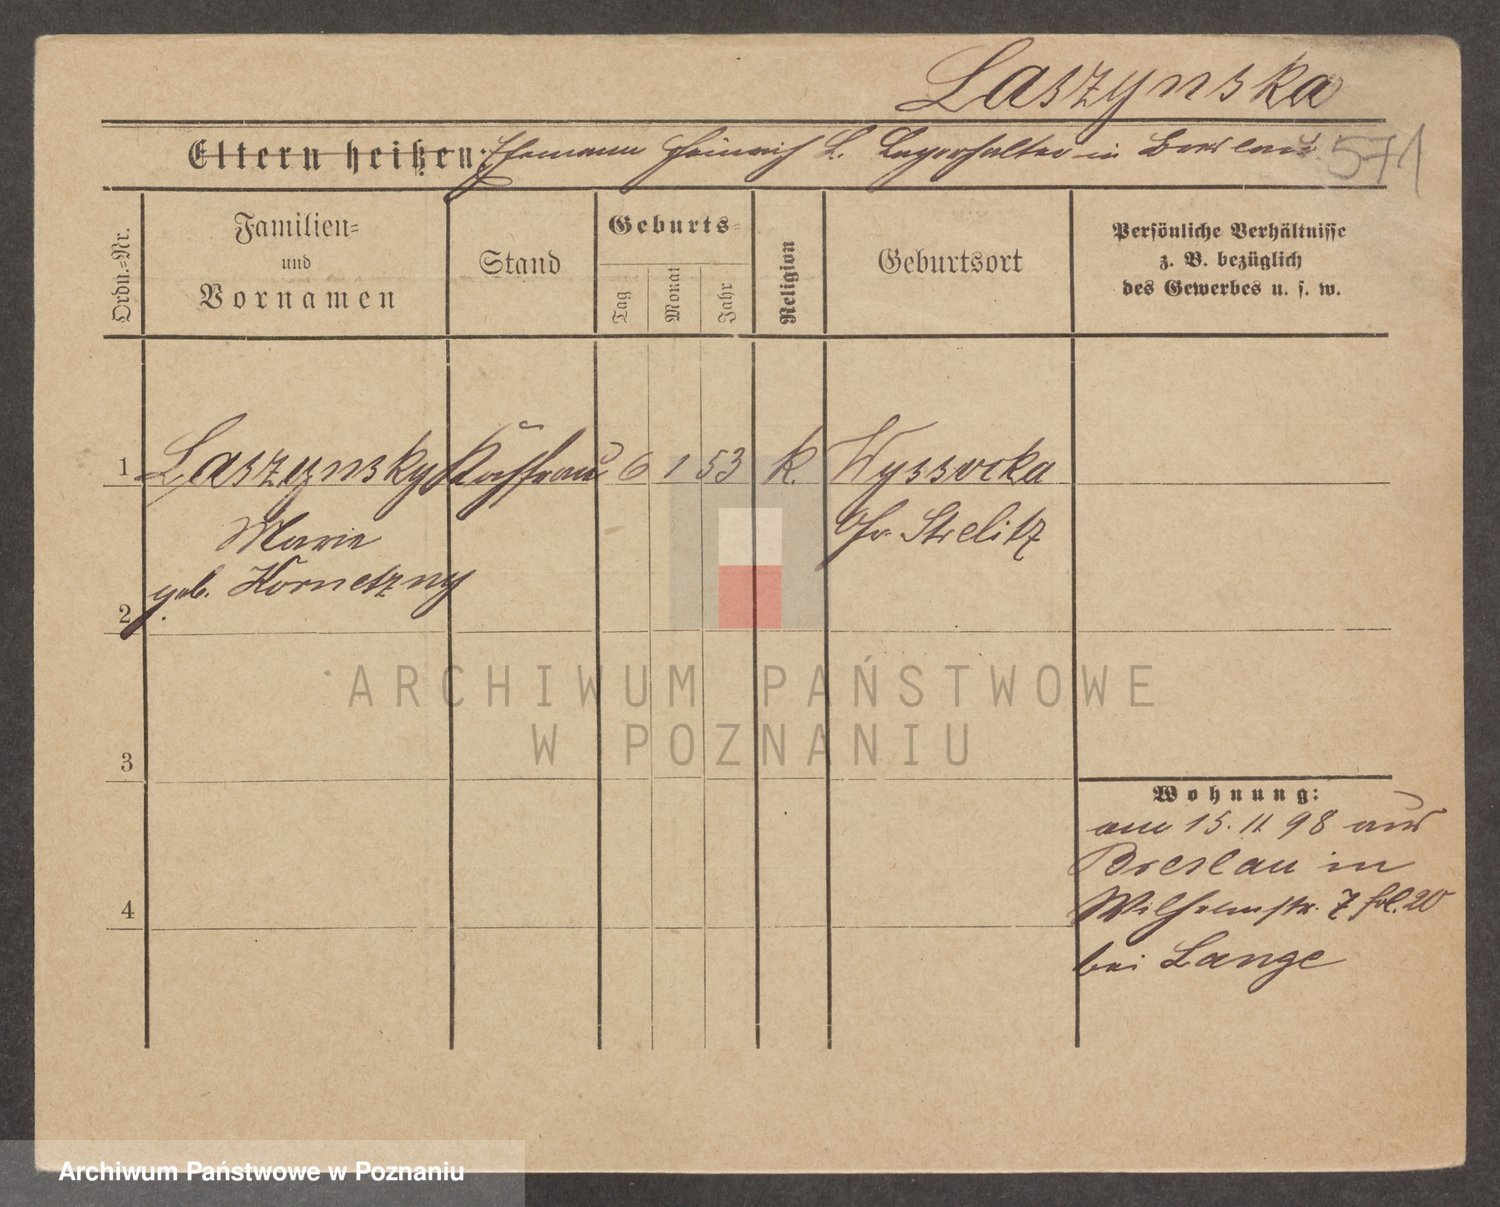 Laszynska
Eltern heißen: Ehemann Heinrich L. Lagerhalter in Breslau
571
Ordn.=Nr.
Familien=
und
Vornamen
Stand
Geburts=
Tag
Monat
Jahr
Religion
Geburtsort
Persönliche Verhältnisse
z. B. bezüglich
des Gewerbes u. s. w.
1 Laszynsky 6 1 53 k. Wyssocka
Marie Gr. Strelitz
geb. Kornetzny
2
3
4
Wohnung:
am 15. 11 98 aus
Breslau in
Wilhelmstr. 7 fol. 20
bei Lange
ARCHIWUM PAŃSTWOWE
W POZNANIU
Archiwum Państwowe w Poznaniu